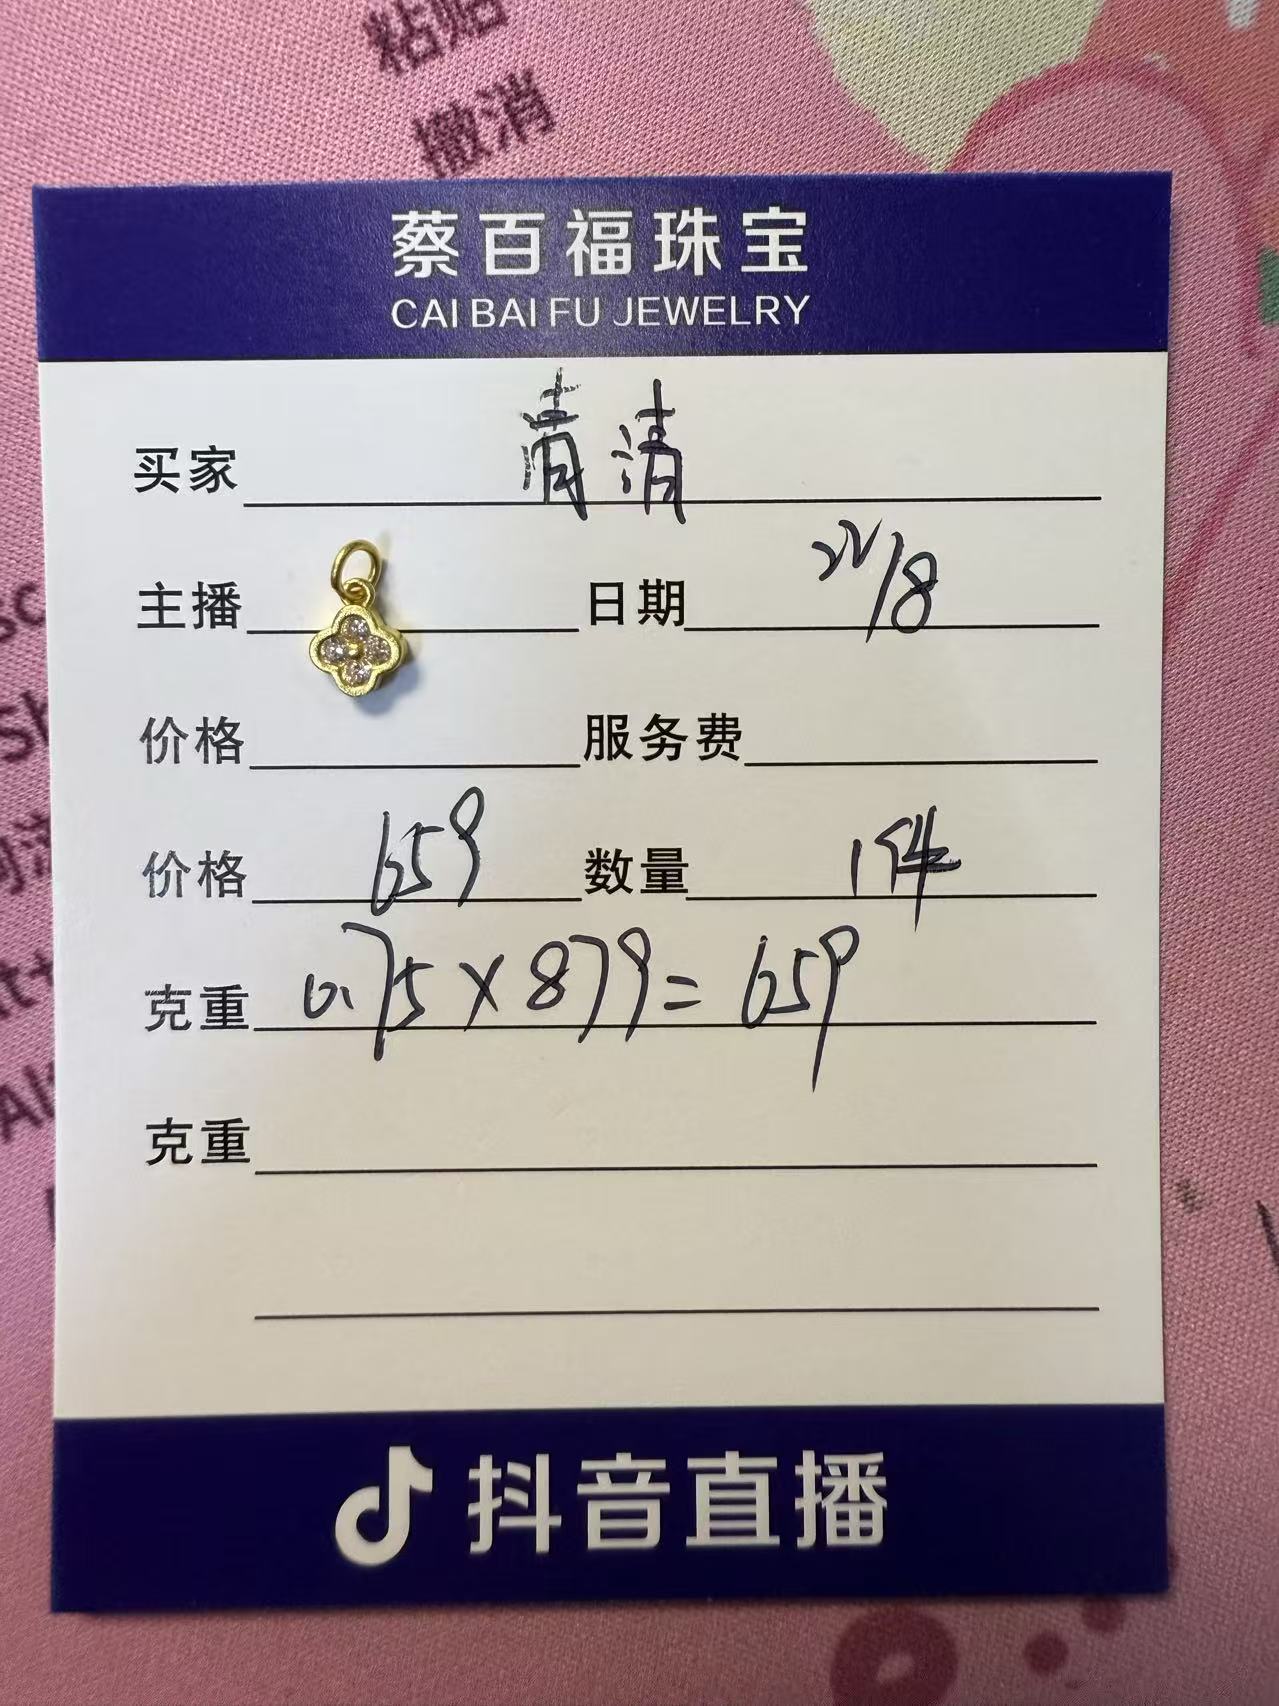 粘贴
撤消
蔡百福珠宝
CAI BAI FU JEWELRY
买家 清清
主播 日期 22/8
价格 服务费
价格 659 数量 1件
克重 0.75×879=659
克重
抖音直播